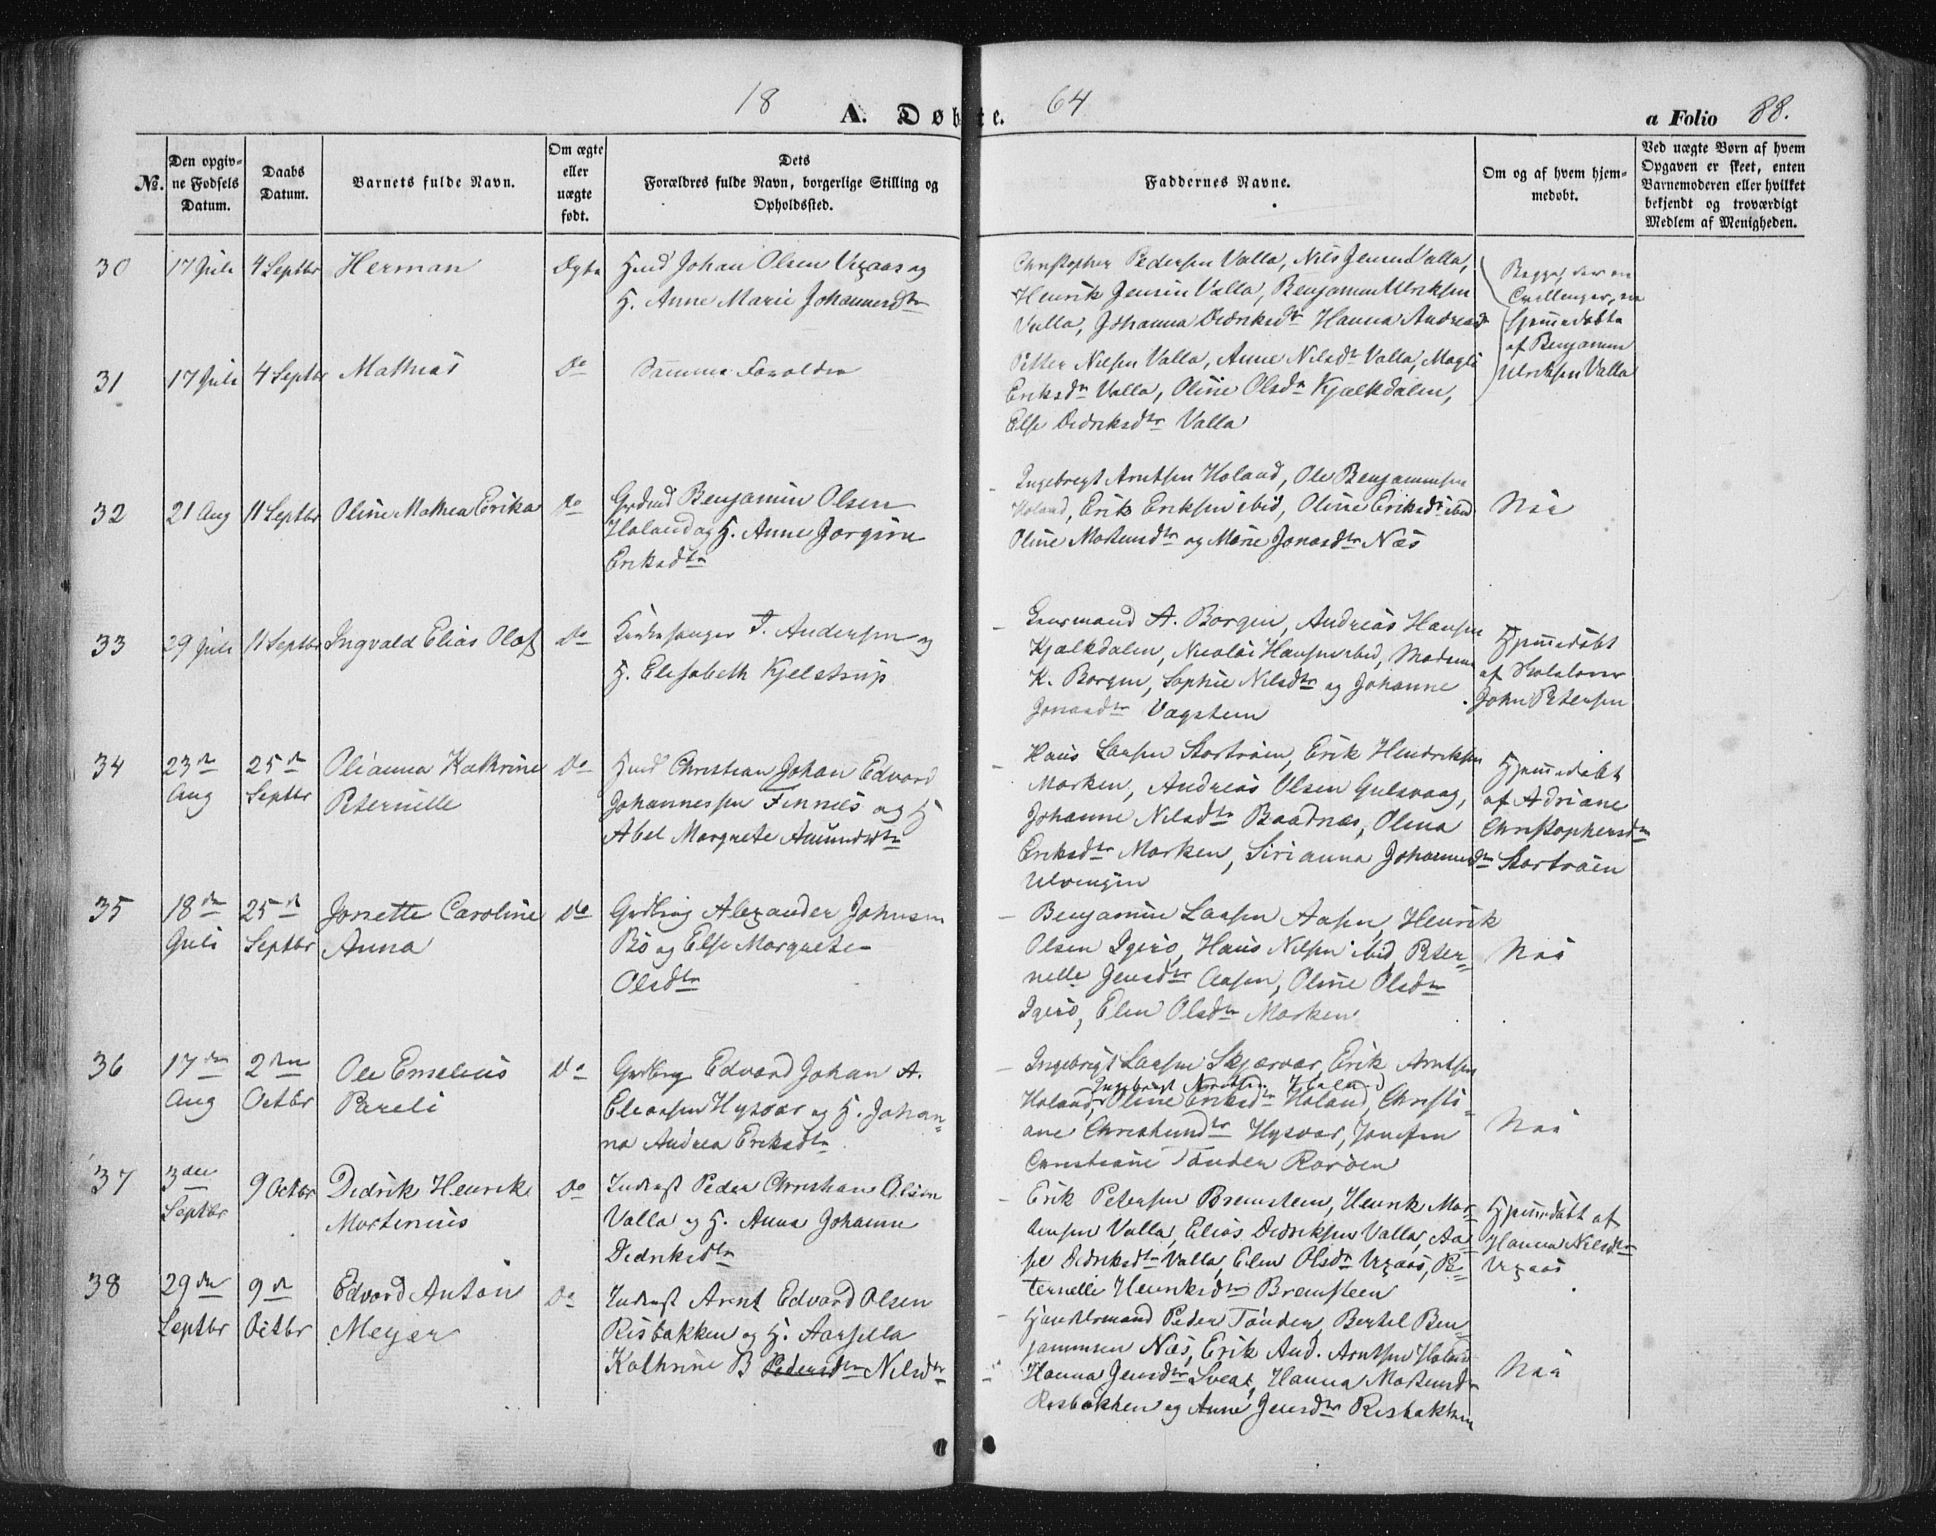 18 A. Døbte. 64 a Folio 88.
No. Den opgivne Fødsels Datum. Daabs Datum. Barnets fulde Navn. Om ægte eller uægte født. Dets Forældres fulde Navn, borgerlige Stilling og Opholdssted. Faddernes Navne. Om og af hvem hjemmedøbt. Ved uægte Børn af hvem Opgaven er skeet, enten Barnemoderen eller hvilket bekjendt og troværdigt Medlem af Menigheden.
30 17 Juli 4 Septbr Herman Ægte Husmd Johan Olsen Vigaas og
H. Anne Marie Johannesdtr
Christopher Pedersen Valla, Nils Jensen Valla,
Henrik Jensen Valla, Benjamin Ulriksen
Valla, Johanna Didriksdtr Hanna Andreasdr
Begge, der ere
Tvillinger, ere
hjemmedøbte
af Benjamin
Ulriksen Valla
31 17 Juli 4 Septbr Mathias Do Samme Forældre
Petter Nilsen Valla, Anne Nilsdr Valla, Magli
Eriksdr Valla, Oline Olsdr Kjælkdalen,
Else Didriksdtr Valla
32 21 Aug 11 Septbr Oline Mathea Erika Do Grdmd Benjamin Olsen
Holand og H. Anne Jorgine
Eriksdtr
Ingebrigt Arntsen Holand, Ole Benjaminsen
Holand, Erik Eriksen ibid, Oline Eriksdr ibid
Oline Mortensdtr og Marie Jonasdtr Næs
Nei
33 29 Juli 11 Septbr Ingvald Elias Olaf Do Kirkesanger T. Andersen og
H. Elisabeth Kjelstrup
Leensmand A. Borgen, Andreas Hansen
Kjælkdalen, Nicolai Hansen ibid, Madame
K. Borgen, Sophie Nilsdtr og Johanne
Jonasdtr Vagsteen
Hjemmedøbt
af Skolelærer
John Petersen
34 23de Aug 25de Septbr Olianna Kathrine
Peternille
Do Husmd Christian Johan Edvard
Johannessen Finnes og H
Abel Margrete Amundsdtr
Hans Larsen Stortroen, Erik Hendriksen
Marken, Andreas Olsen Gulsvaag,
Johanne Nilsdtr Baadnæs, Olina
Eriksdtr Marken, Sirianna Johannesdtr
Ulvingen
Hjemmedøbt
af Adriane
Christophersdtr
Stortroen
35 18de Juli 25de Septbr Jonette Caroline
Anna
Do Grdbrug Alexander Johnsen
Bø og Else Margrete
Olsdtr
Benjamin Larsen Aasen, Henrik
Olsen Igerø, Hans Nilsen ibid, Peter-
nelle Jensdtr Aasen, Oline Olsdtr
Igerø, Elen Olsdtr Marken
Nei
36 17de Aug 2den Octbr Ole Emelius
Pareli
Do Grdbrg Edvard Johan A.
Eliassen Hysvær og H. Johan-
na Andrea Eriksdtr
Ingebrigt Larsen Skjærvær, Erik Arntsen
Ingebrigt Arntsen Holand
Holand, Oline Eriksdtr Holand, Christi-
ane Christensdtr Hysvær, Jomfru
Christiane Tønder Rorøen
Nei
37 3die Septbr 9 Octbr Didrik Henrik
Mortenius
Do Inderst Peder Christian Olsen
Valla og H. Anna Johanne
Didriksdtr
Erik Petersen Bremsteen, Henrik Mor-
tensen Valla, Elias Didriksen Valla, Aa-
se Didriksdtr Valla, Elen Olsdtr Vigaas, Pe-
ternelle Henriksdtr Bremsteen
Hjemmedøbt af
Hanna Nilsdtr
Vigaas
38 29de Septbr 9de Octbr Edvard Anton
Meyer
Do Inderst Arnt Edvard Olsen
Risbakken og H. Aarsella
Kathrine B Pedersdtr Nilsdtr
Handelsmand Peder Tønder, Bertel Ben-
jaminsen Næs, Erik And. Arntsen Holand
Hanna Jensdtr Sveat, Hanna Mortensdr
Risbakken og Anne Jensdtr Risbakken
Nei